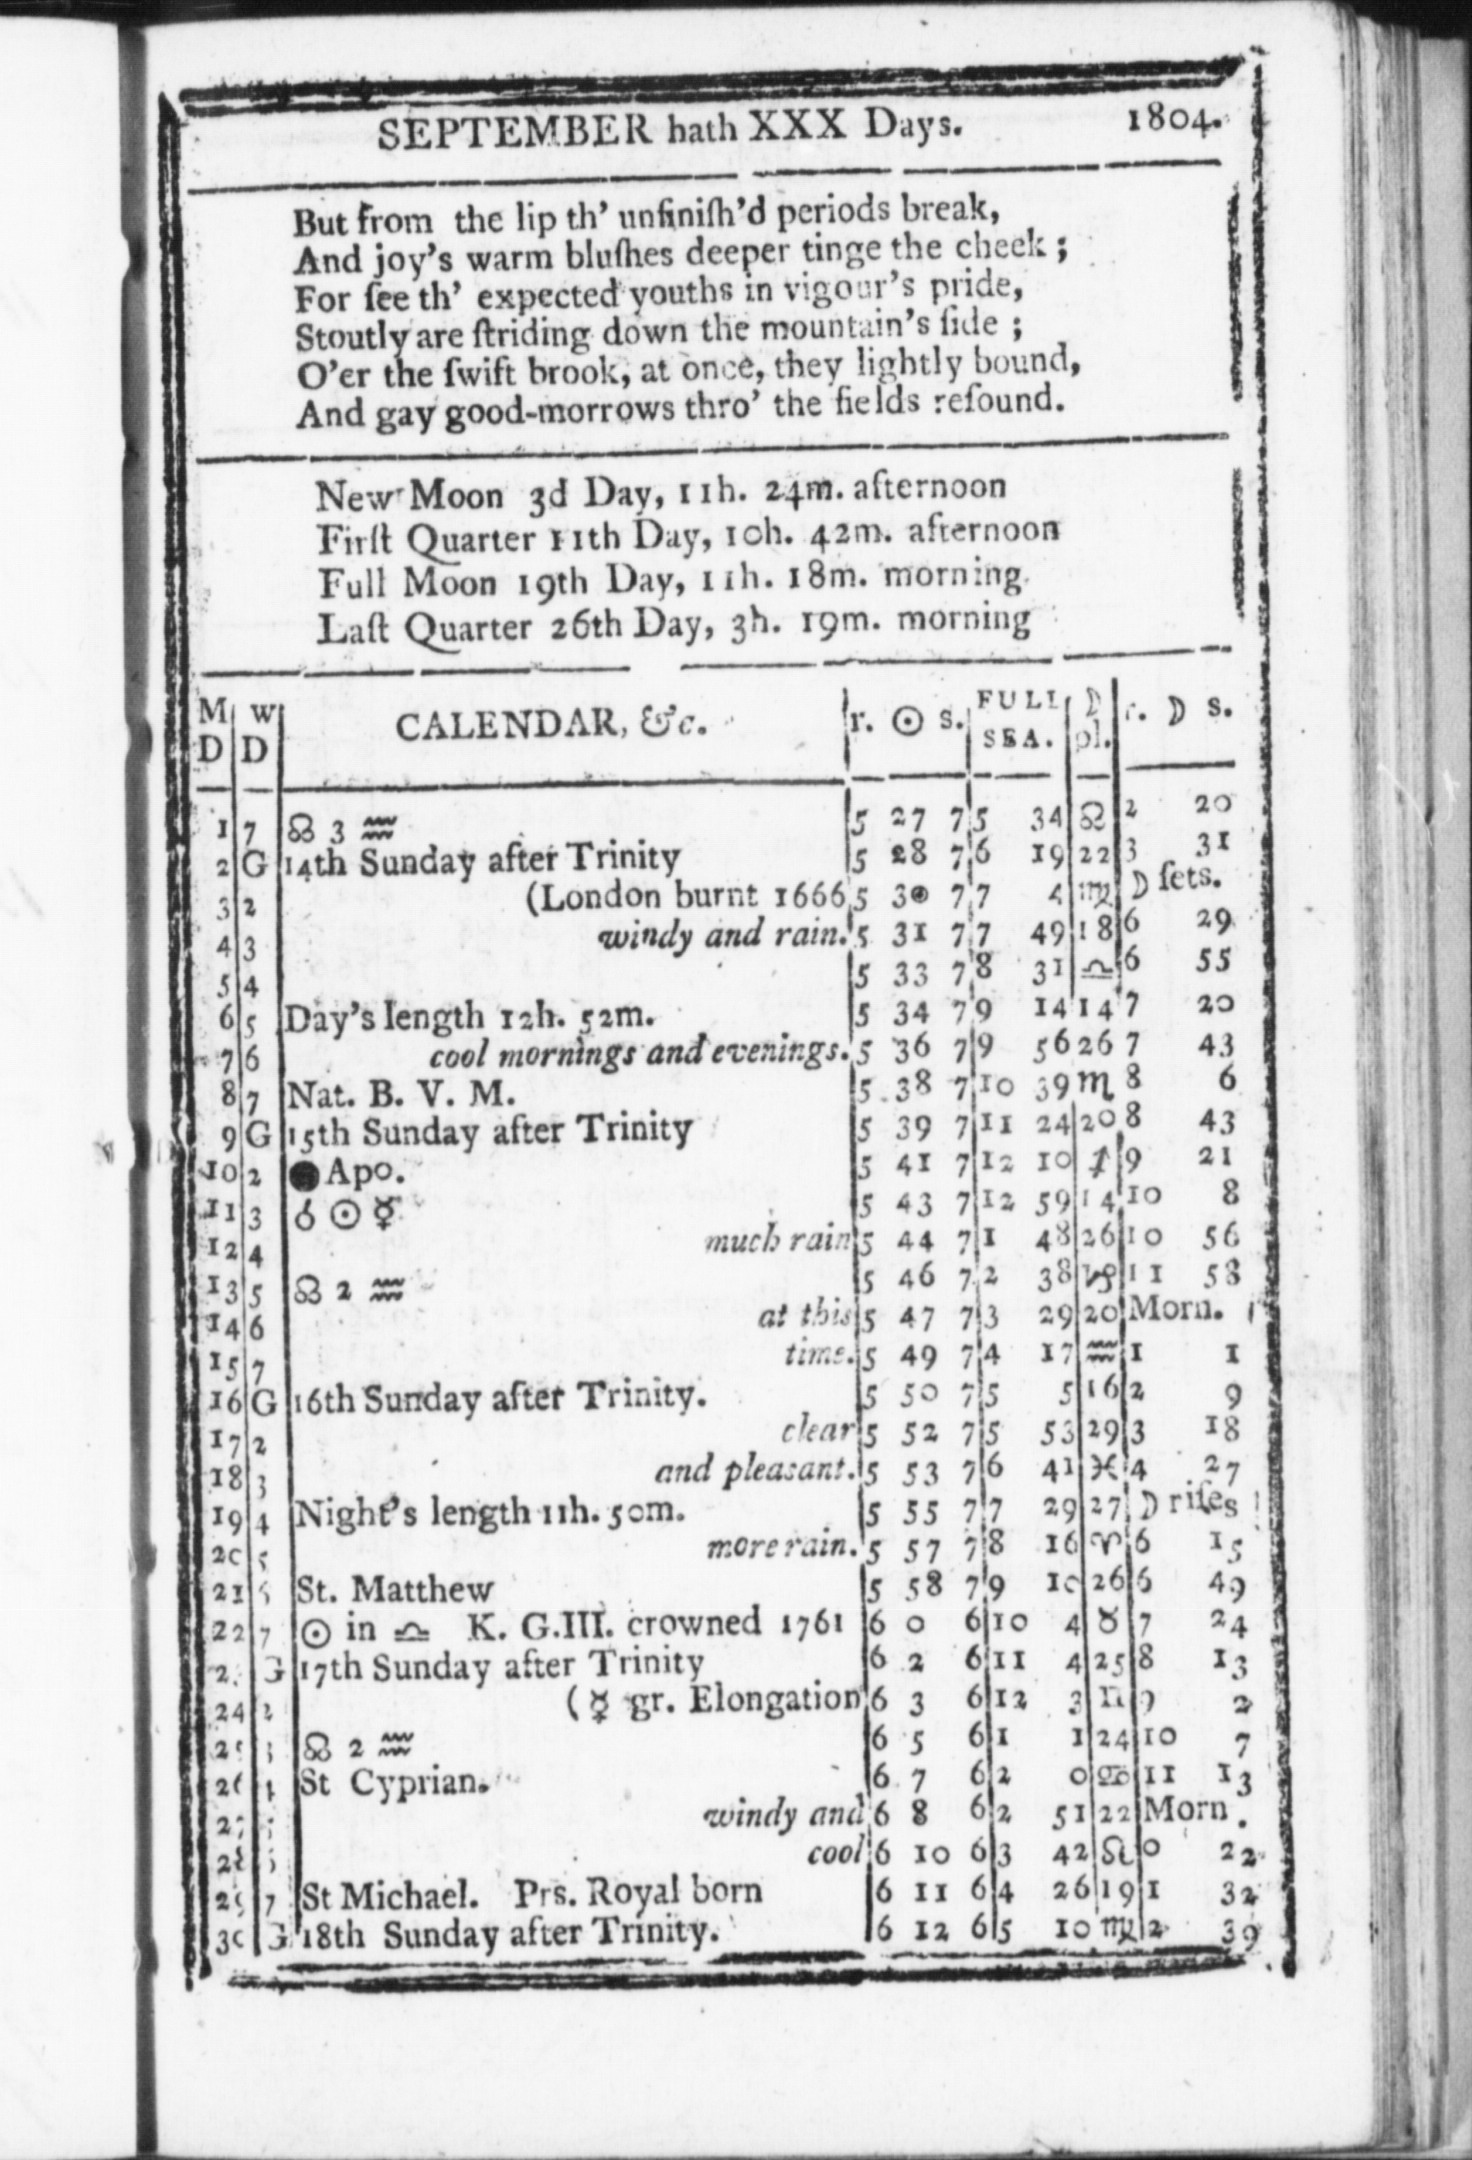 SEPTEMBER hath XXX Days. 1804.
But from the lip th' unfiniſh'd periods break,
And joy's warm bluſhes deeper tinge the cheek ;
For ſee th' expected youths in vigour's pride,
Stoutly are ſtriding down the mountain's ſide ;
O'er the ſwift brook, at once, they lightly bound,
And gay good-morrows thro' the fields reſound.
New Moon 3d Day, 11h. 24m. afternoon
Firſt Quarter 11th Day, 10h. 42m. afternoon
Full Moon 19th Day, 11h. 18m. morning
Laſt Quarter 26th Day, 3h. 19m. morning
M W CALENDAR, &c. r. ☉ s. FULL ☽ r. ☽ s.
D D SEA. pl.
1 7 ☊ 3 ♒ 5 27 7 5 34 ☊ 2 20
2 G 14th Sunday after Trinity 5 28 7 6 19 22 3 31
3 2 (London burnt 1666 5 30 7 7 4 ♍ ☽ ſets.
4 3 windy and rain. 5 31 7 7 49 18 6 29
5 4 5 33 7 8 31 ♎ 6 55
6 5 Day's length 12h. 52m. 5 34 7 9 14 14 7 20
7 6 cool mornings and evenings. 5 36 7 9 56 26 7 43
8 7 Nat. B. V. M. 5 38 7 10 39 ♏ 8 6
9 G 15th Sunday after Trinity 5 39 7 11 24 20 8 43
10 2 ● Apo. 5 41 7 12 10 ♐ 9 21
11 3 ☌ ☉ ☿ 5 43 7 12 59 14 10 8
12 4 much rain 5 44 7 1 48 26 10 56
13 5 ☊ 2 ♒ 5 46 7 2 38 ♑ 11 58
14 6 at this 5 47 7 3 29 20 Morn.
15 7 time. 5 49 7 4 17 ♒ 1 1
16 G 16th Sunday after Trinity. 5 50 7 5 5 16 2 9
17 2 clear 5 52 7 5 53 29 3 18
18 3 and pleasant. 5 53 7 6 41 ♓ 4 27
19 4 Night's length 11h. 50m. 5 55 7 7 29 27 ☽ riſes
20 5 more rain. 5 57 7 8 16 ♈ 6 15
21 6 St. Matthew 5 58 7 9 10 26 6 49
22 7 ☉ in ♎ K. G.III. crowned 1761 6 0 6 10 4 ♉ 7 24
2 G 17th Sunday after Trinity 6 2 6 11 4 25 8 13
24 2 (☿ gr. Elongation 6 3 6 12 3 ♊ 9 2
25 3 ☊ 2 ♒ 6 5 6 1 1 24 10 7
26 4 St Cyprian. 6 7 6 2 0 ♋ 11 13
27 windy and 6 8 6 2 51 22 Morn.
28 cool 6 10 6 3 42 ♌ 0 22
29 7 St Michael. Prs. Royal born 6 11 6 4 26 19 1 32
30 G 18th Sunday after Trinity. 6 12 6 5 10 ♍ 2 39